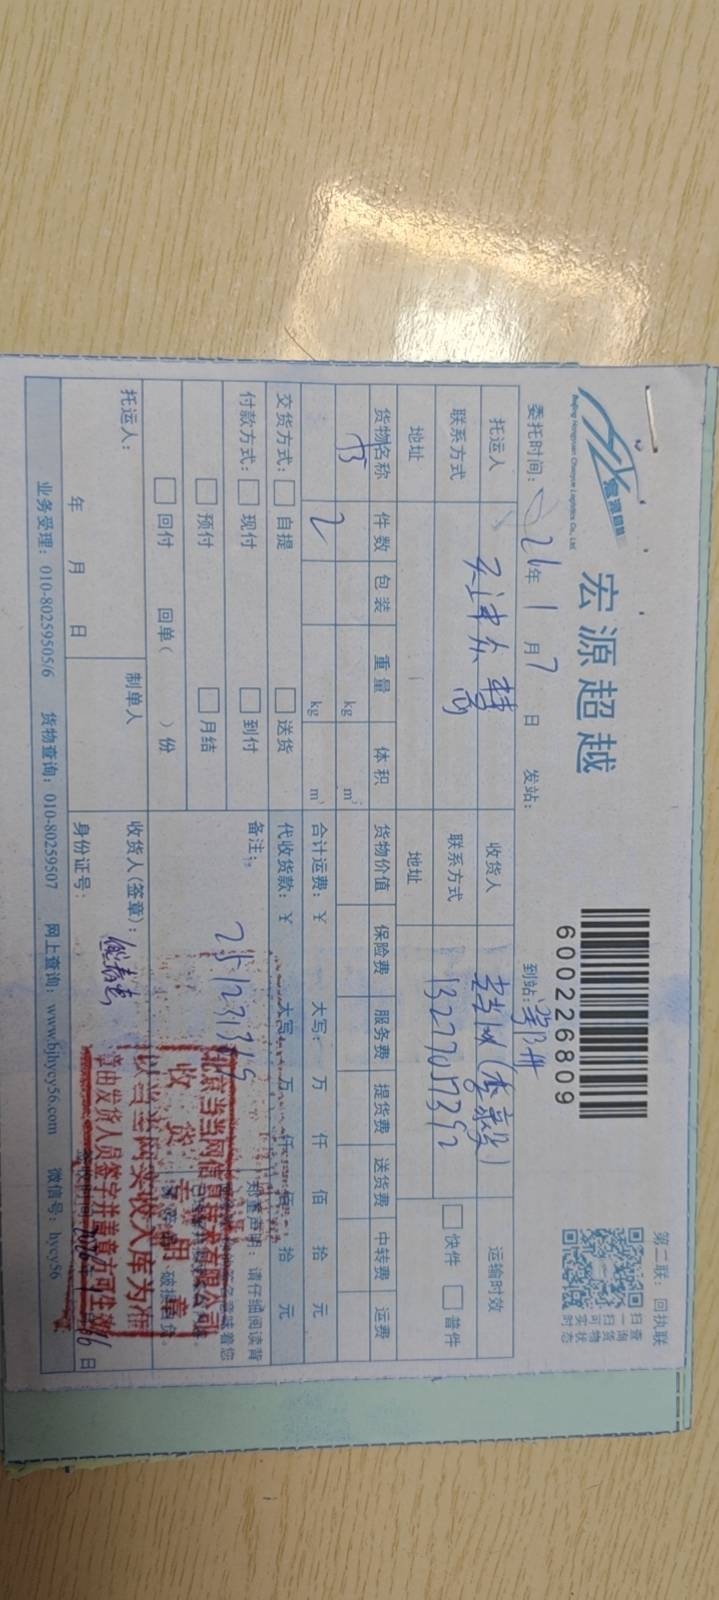 第二联：回执联
宏源超越
Beijing Hongyuan Chaoyue Logistics Co., Ltd
宏源超越
600226809
扫查
一询
扫货
可物
实状
时态
委托时间： 26年 1月 7日 发站： 到站：
托运人 收货人 运输时效
联系方式 联系方式 13227057392 快件 普件
地址 地址
货物名称 件数 包装 重量 体积 货物价值 保险费 服务费 提货费 送货费 中转费 运费
书 2 kg m³
kg m³ 合计运费：￥ 大写： 万 仟 佰 拾 元
交货方式： 自提 送货 代收货款：￥ 大写： 万 仟 佰 拾 元
付款方式： 现付 到付 备注： 郑重声明：请仔细阅读背
预付 月结 25.1231315
回付 回单（ ）份
北京当当网信息技术有限公司
收货专用章
以当当网实收入库为准
章由发货人员签字并盖章方可生效
托运人： 制单人 收货人（签章）：
年 月 日 身份证号： 日
业务受理：010-80259505/6 货物查询：010-80259507 网上查询：www.bjhycy56.com 微信号：hycy56